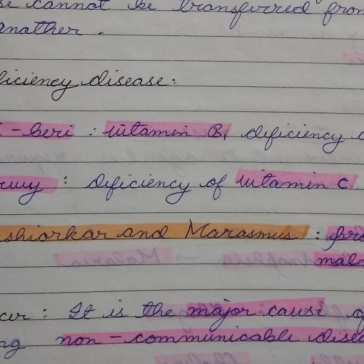 se cannot be transferred from
another.
ficiency disease:
i-beri : vitamin B1 deficiency
rvy : deficiency of vitamin C.
shiorkar and Marasmus : pro
mal
cer : It is the major cause o
ng non-communicable disea